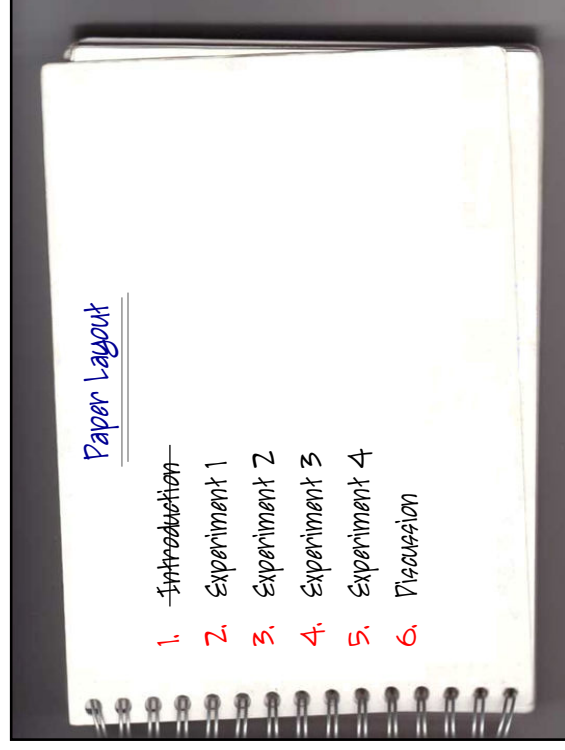 Paper Layout
1. Introduction
2. Experiment 1
3. Experiment 2
4. Experiment 3
5. Experiment 4
6. Discussion